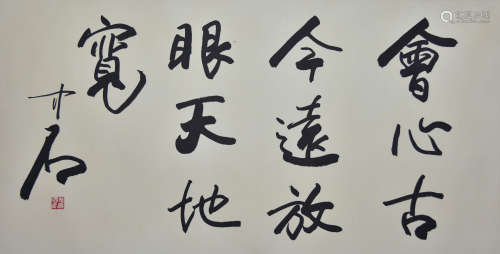 會心古
今遠放
眼天地
寬
中石